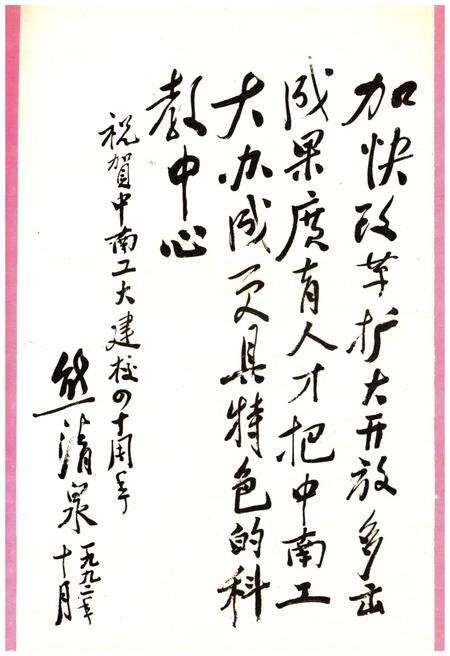 加快改革扩大开放多出
成果广育人才把中南工
大办成更具特色的科
教中心
祝贺中南工大建校四十周年
熊清泉
一九九二年
十月